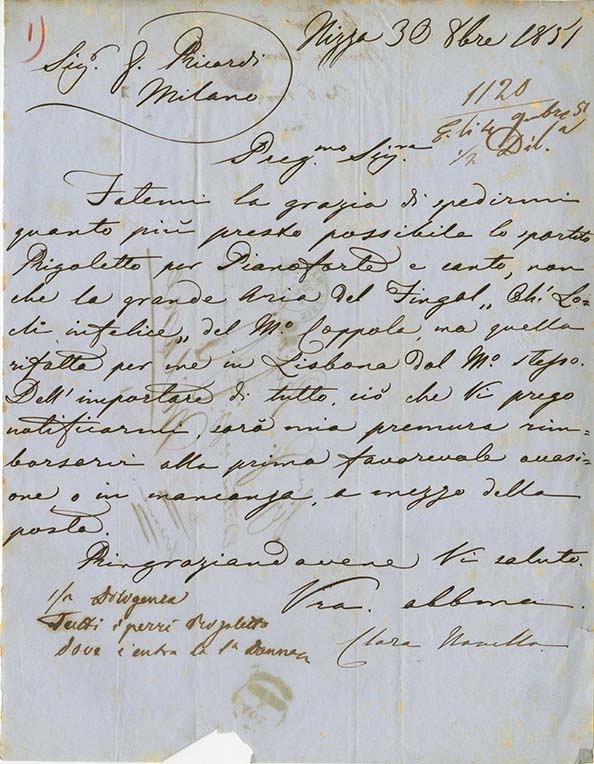 1)
Nizza 30 8bre 1851
Sigr. G. Ricordi
Milano
1120
1/2 Dil.a
Preg.mo Sig.re
Fatemi la grazia di spedirmi
quanto più presto possibile lo spartito
Rigoletto per Pianoforte e canto, non
che la grande Aria del Fingal „ Chi Lo=
di infelice „ del Mo. Coppola, ma quella
rifatta per me in Lisbona dal Mo. stesso.
Dell'importare di tutto, ciò che Vi prego
notificarmi, sarà mia premura rim=
borsarvi alla prima favorevole occasi=
one o in mancanza, a mezzo della
posta.
Ringraziandovene Vi saluto.
Vra. obbma.
Clara Novello
1/2 Diligenza
Tutti i pezzi Rigoletto
dove c'entra la 1a Donna